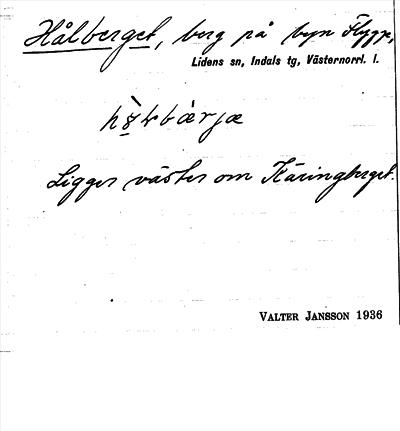 Hålberget, berg på byn Flygge,
Lidens sn, Indals tg, Västernorrl. l.
Ligger väster om Käringberget.
VALTER JANSSON 1936